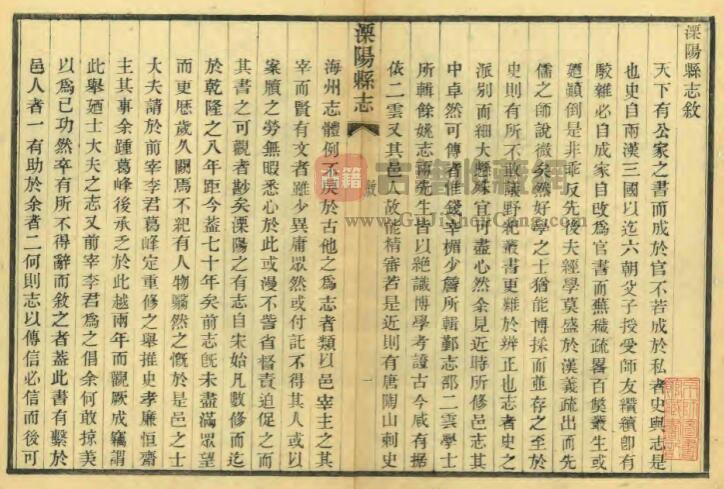 溧陽縣志敘
天下有公家之書而成於官不若成於私者史與志是
也史自兩漢三國以迄六朝父子授受師友纘續卽有
駮雜必自成家自改爲官書而蕪穢疏畧百獘叢生或
顚倒是非乖反先後夫經學莫盛於漢義疏出而先
儒之師說微矣然好學之士猶能博採而並存之至於
史則有所不敢議野乘叢書更難於辨正也志者史之
派別而細大懸殊宜可盡心然余見近時所修邑志其
中卓然可傳者惟錢宰楣少詹所輯鄞志邵二雲學士
所輯餘姚志兩先生皆以絶識博學考證古今咸有据
依二雲又其邑人故能精審若是近則有唐陶山刺史
溧陽縣志
敘
一
海州志體例不戾於古他之爲志者類以邑宰主之其
宰而賢有文者雖少異庸眾然或付託不得其人或以
案牘之勞無暇悉心於此或漫不訾省督責迫促之而
其書之可觀者尠矣溧陽之有志自宋始凡數修而迄
於乾隆之八年距今葢七十年矣前志旣未盡滿眾望
而更歷歲久闕焉不紀有人物翳然之慨於是邑之士
大夫請於前宰李君葛峰定重修之舉推史孝廉恒齋
主其事余踵葛峰後承乏於此越兩年而觀厥成竊謂
此舉廼士大夫之志又前宰李君爲之倡余何敢掠美
以爲己功然卒有所不得辭而敘之者葢此書有繫於
邑人者一有助於余者二何則志以傳信必信而後可
古籍收藏網
www.GuJiShuCang.com